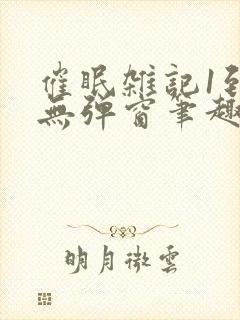 催眠雑記1到
無弹窗筆趣
明月微雲